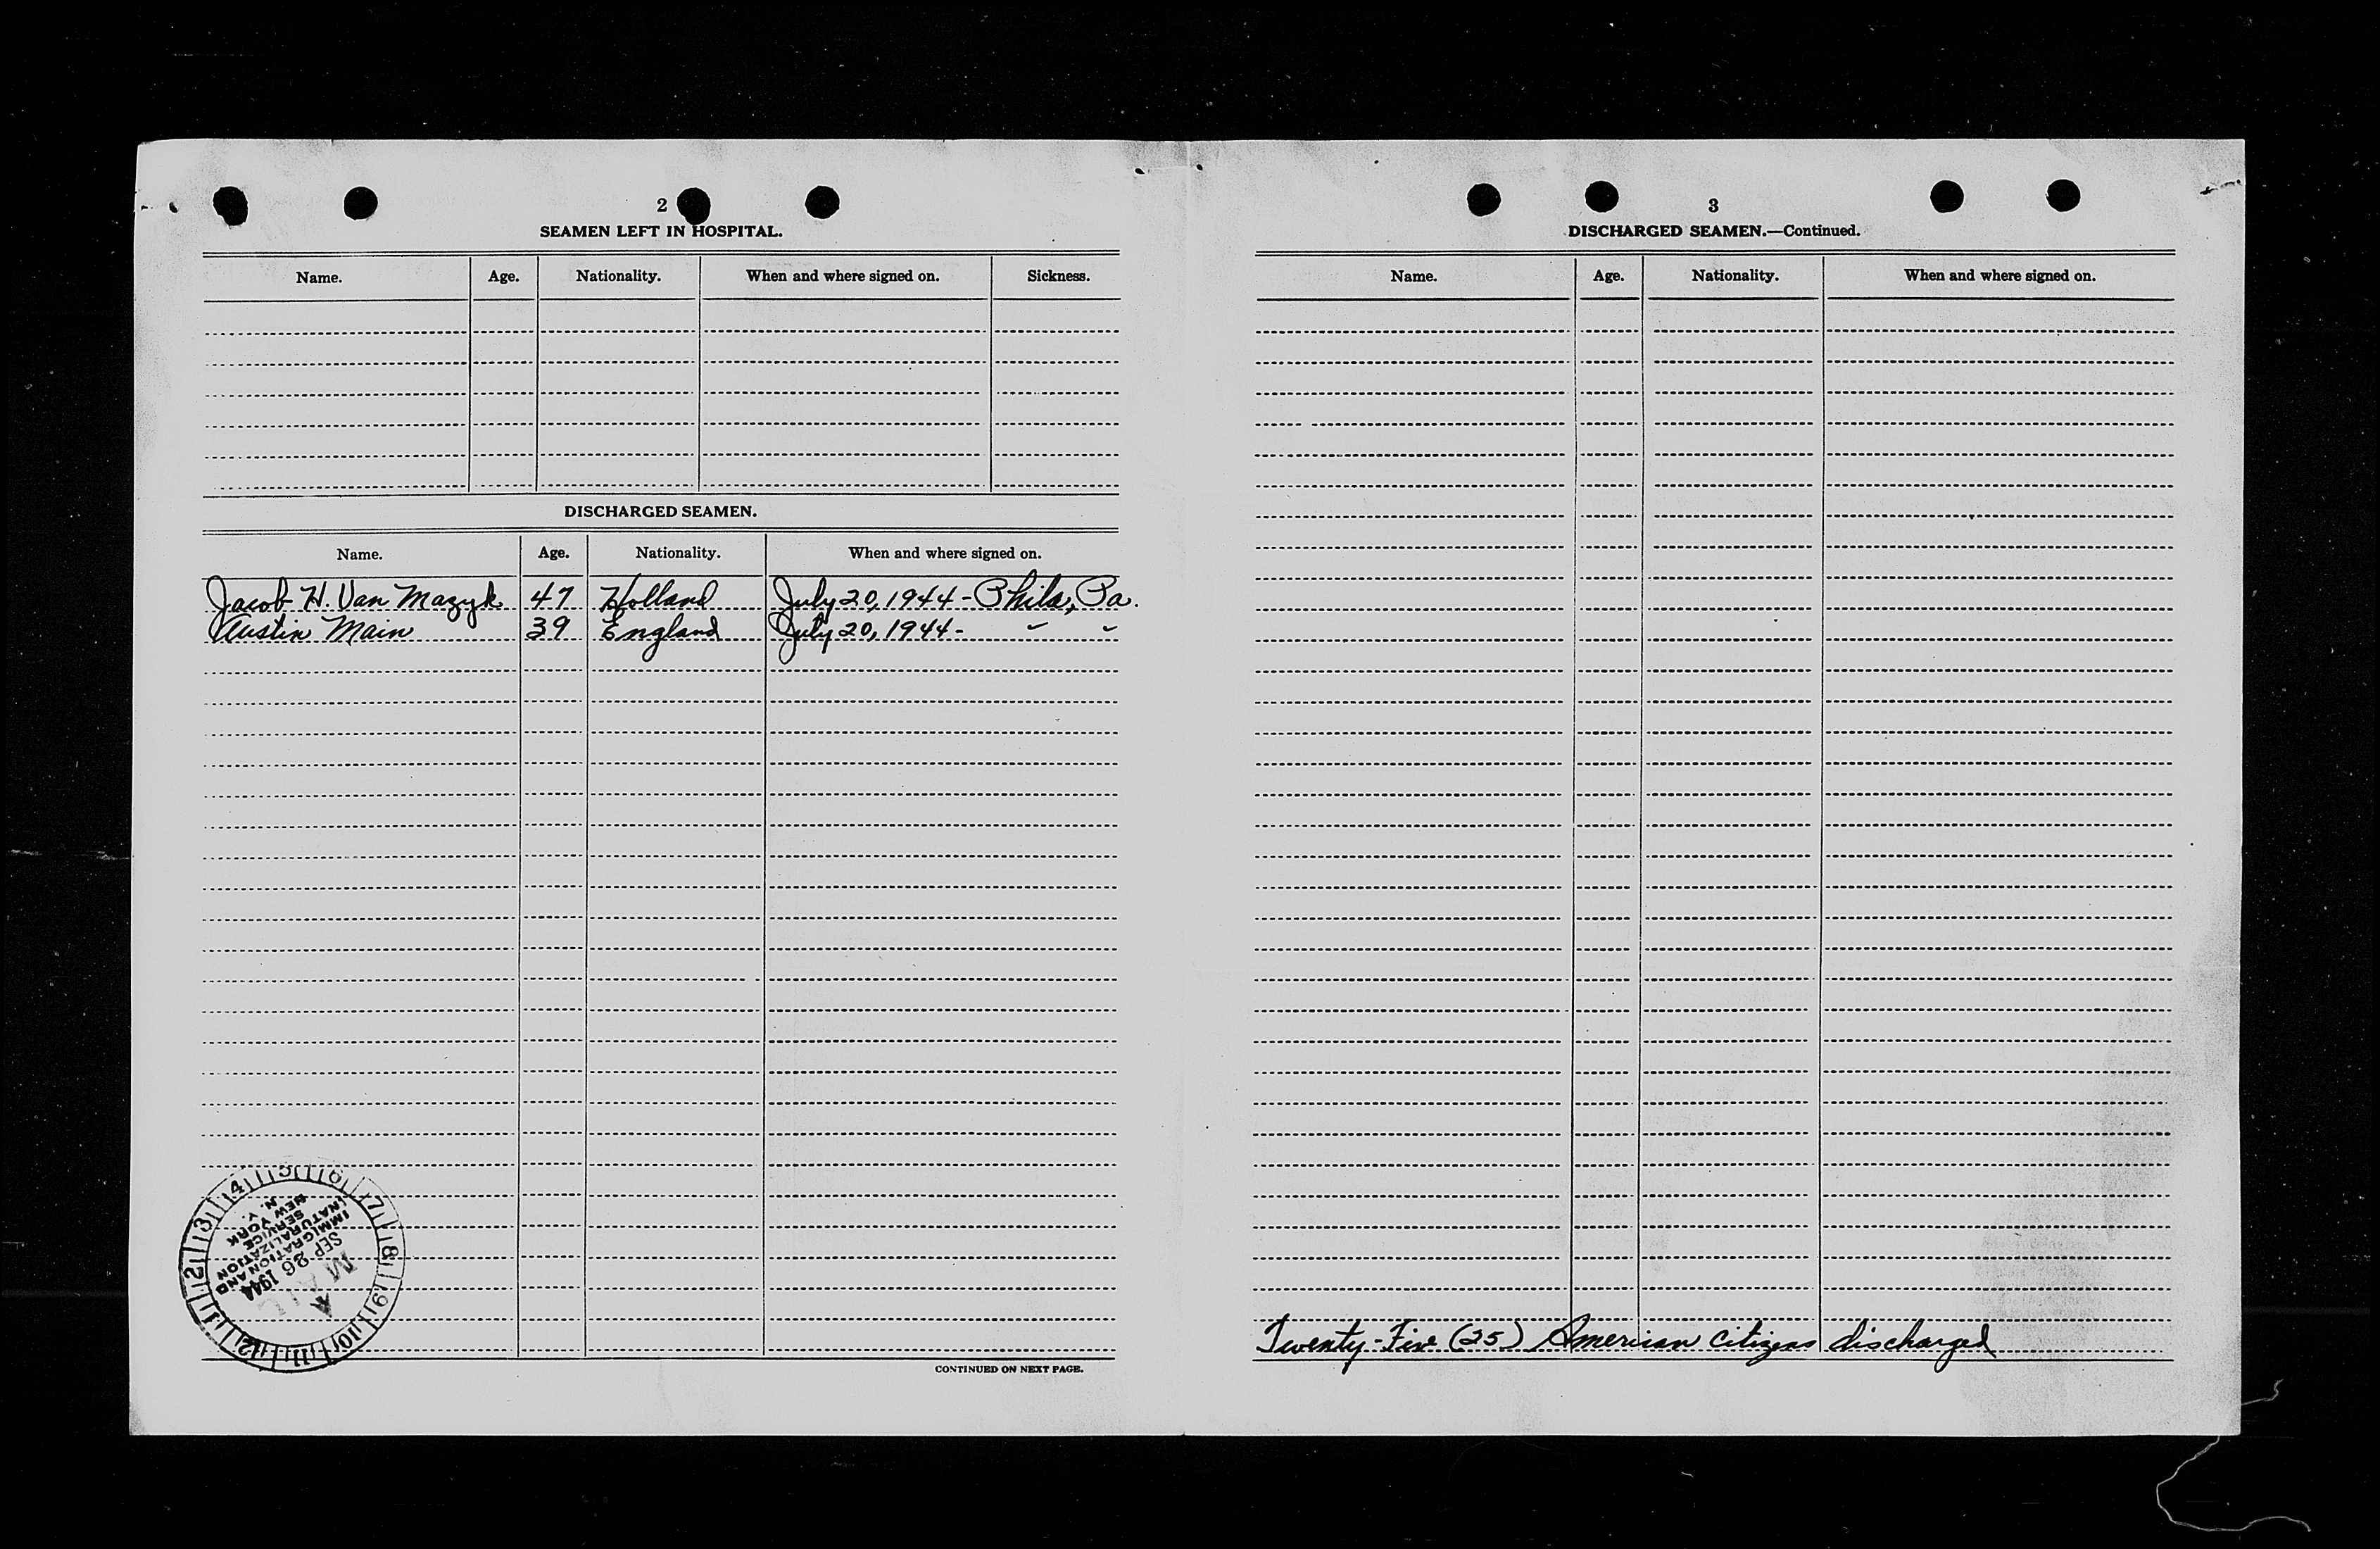 2
SEAMEN LEFT IN HOSPITAL.
Name. Age. Nationality. When and where signed on. Sickness.
DISCHARGED SEAMEN.
Name. Age. Nationality. When and where signed on.
Jacob H. Van Mazyk 47 Holland July 20, 1944 - Phila, Pa.
Austin Main 39 England July 20, 1944 - " "
5 6 7 8 9 10 11 12 1 2 3 4
IMMIGRATION AND
NATURALIZATION
SERVICE
NEW YORK
N. Y.
SEP 26 1944
CONTINUED ON NEXT PAGE.
3
DISCHARGED SEAMEN.—Continued.
Name. Age. Nationality. When and where signed on.
Twenty-Five (25) American citizens discharged